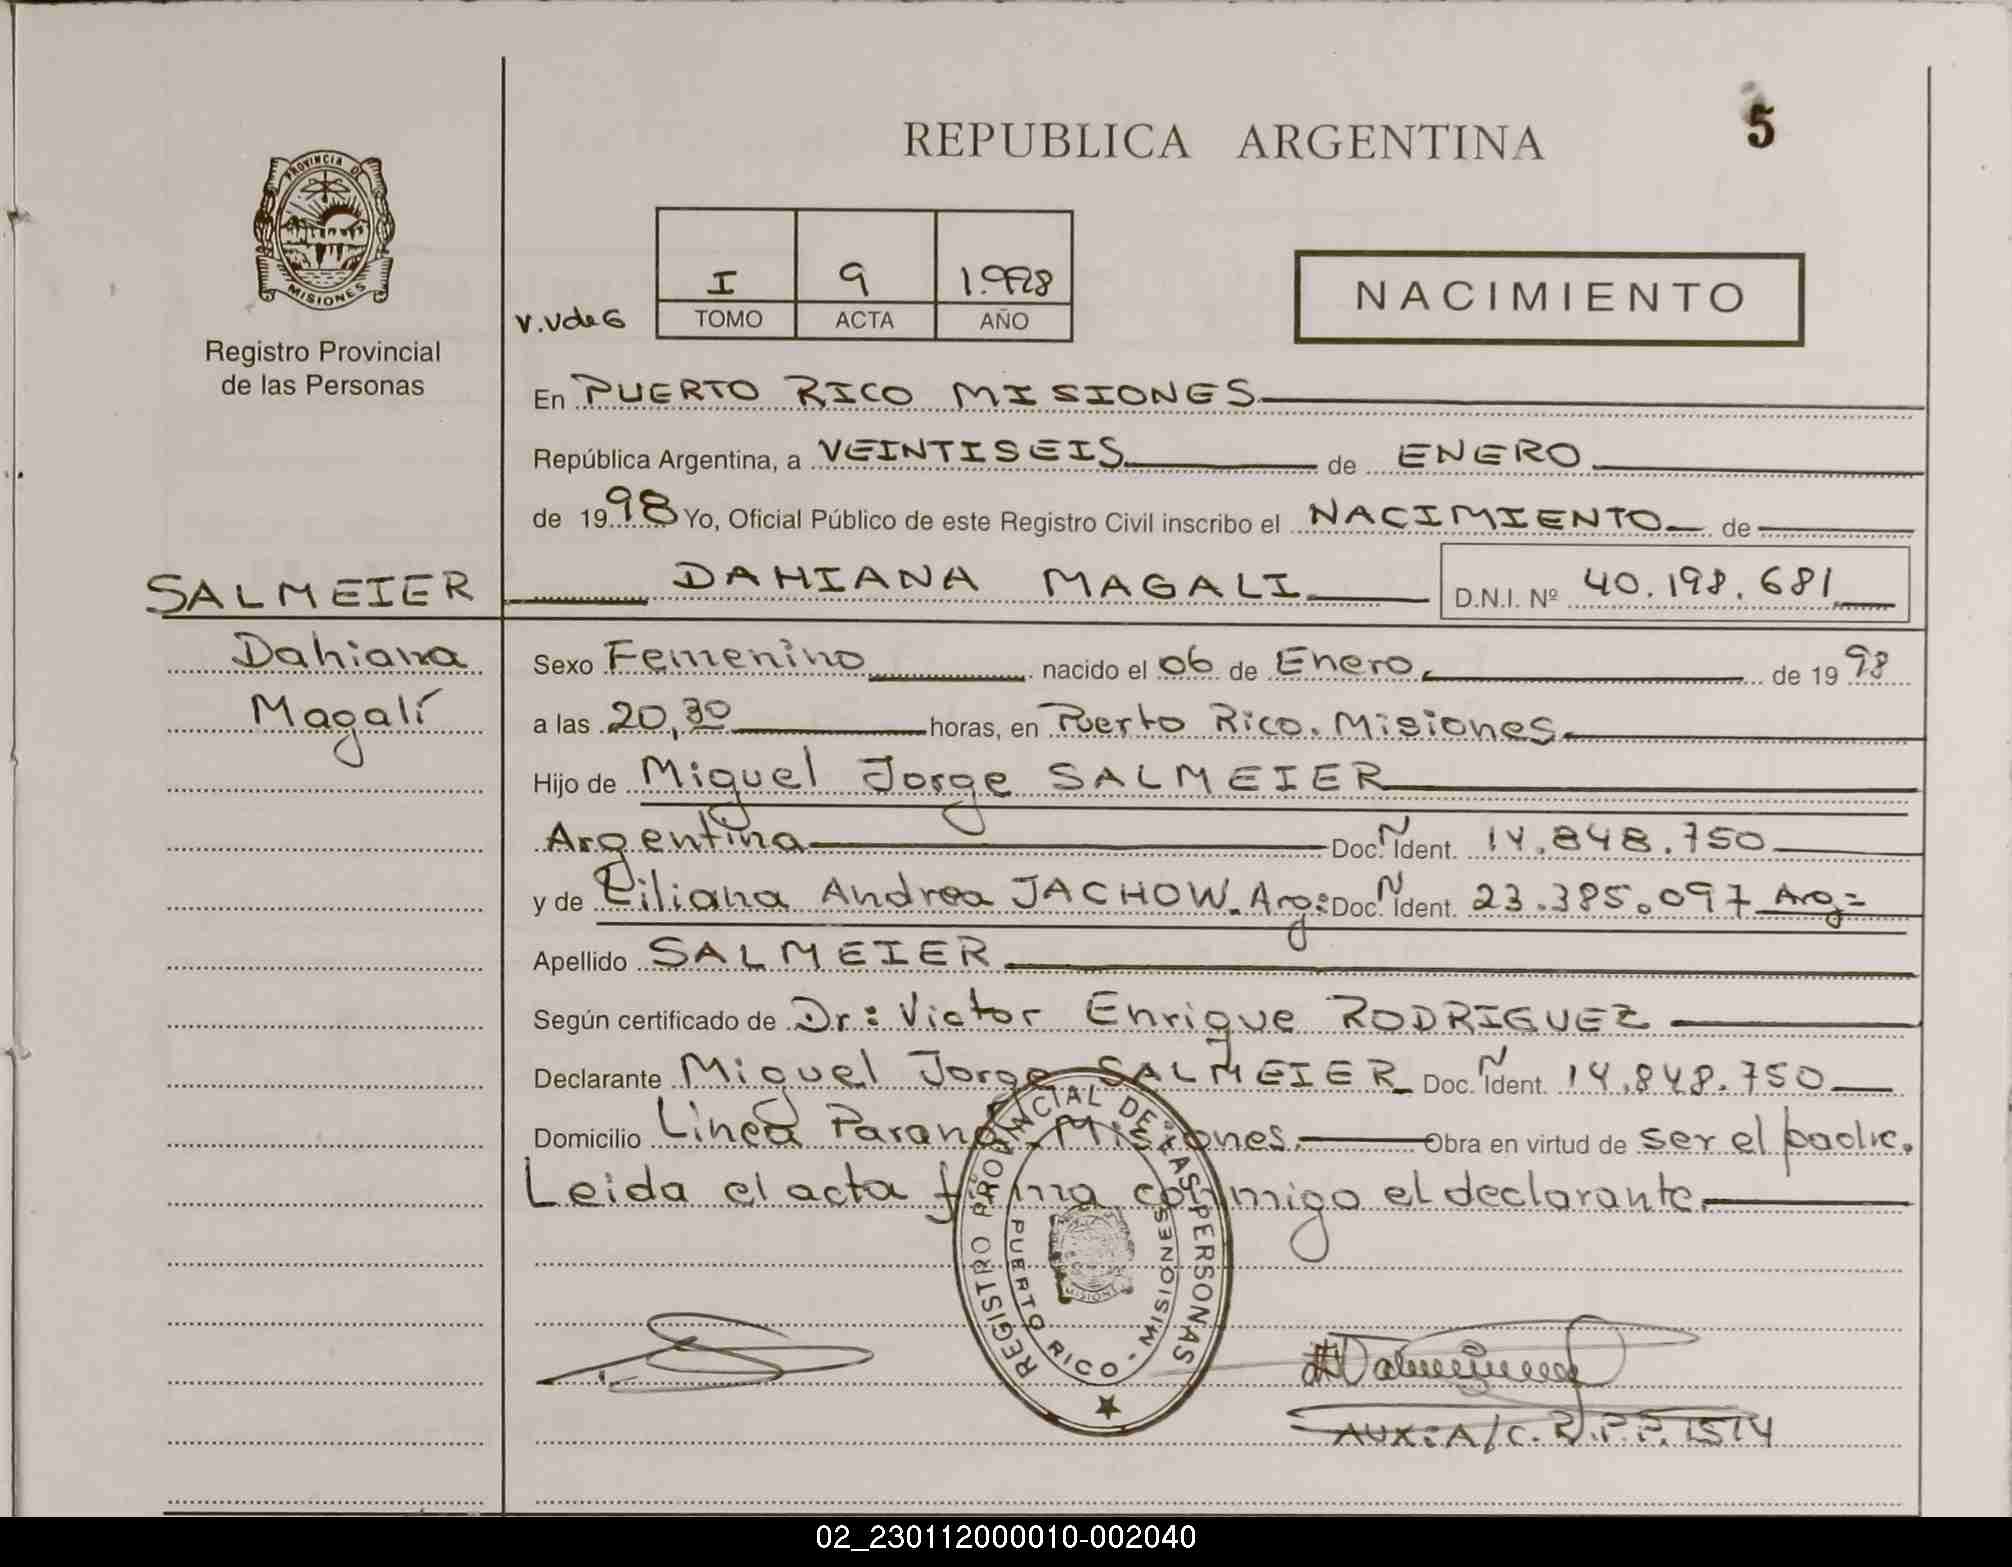 REPUBLICA ARGENTINA
5
PROVINCIA DE
MISIONES
Registro Provincial
de las Personas
V.VdeG
I 9 1.998
TOMO ACTA AÑO
NACIMIENTO
En PUERTO RICO MISIONES
República Argentina, a VEINTISEIS de ENERO
de 1998 Yo, Oficial Público de este Registro Civil inscribo el NACIMIENTO de
SALMEIER
DAHIANA MAGALI. D.N.I. Nº 40.198.681
Dahiana
Magalí
Sexo Femenino nacido el 06 de Enero. de 1998
a las 20,30 horas, en Puerto Rico. Misiones.
Hijo de Miguel Jorge SALMEIER
Argentina Doc. Ñ Ident. 14.848.750
y de Liliana Andrea JACHOW. Arg: Doc. Ñ Ident. 23.385.097 Arg=
Apellido SALMEIER
Según certificado de Dr: Victor Enrique RODRIGUEZ
Declarante Miguel Jorge SALMEIER Doc. Ñ Ident. 14.848.750
Domicilio Linea Paraná. Misiones. Obra en virtud de ser el padre.
Leida el acta firma conmigo el declarante.
REGISTRO PROVINCIAL DE LAS PERSONAS
PUERTO RICO - MISIONES
MISIONES
AUX: A/C. R.P.P. 1514
02_230112000010-002040